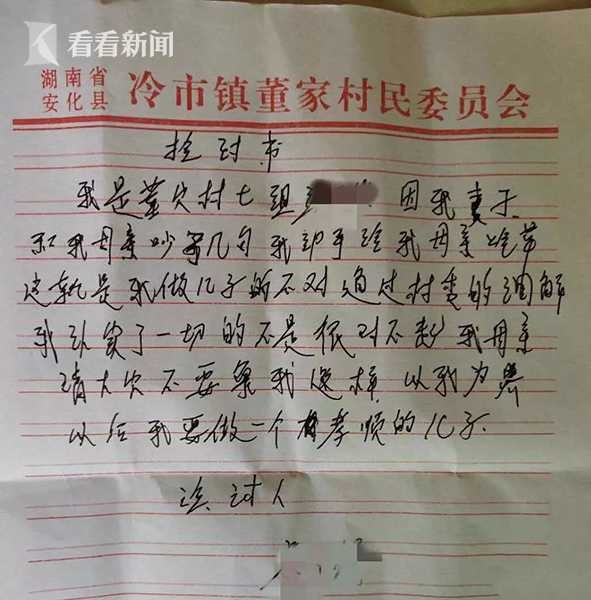 看看新闻
湖南省
安化县
冷市镇董家村民委员会
检讨书
我是董家村七组 因我妻子
和我母亲吵了几句我动手给我母亲
这就是我做儿子的不对通过村委的调解
我认实了一切的不是很对不起我母亲
请大家不要象我这样 以我为
以后我要做一个有孝顺的儿子.
检讨人